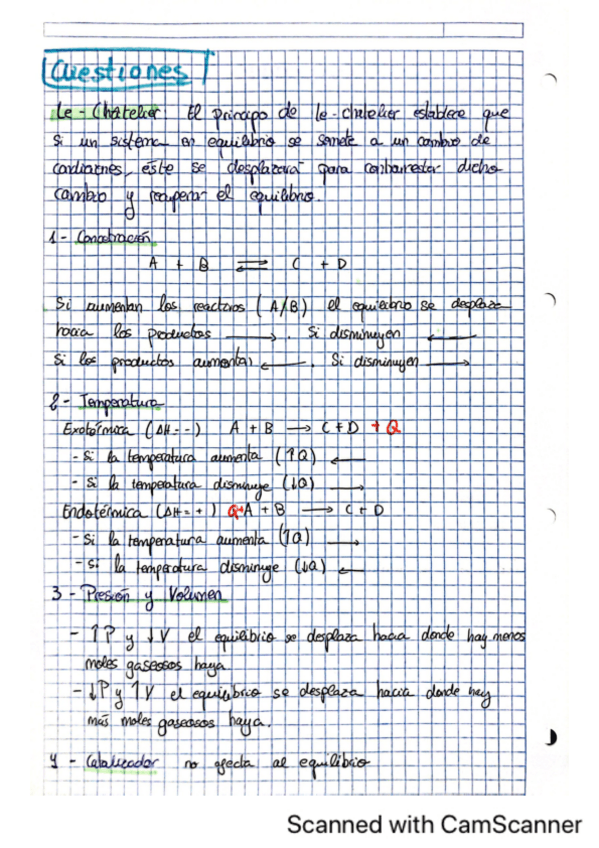 Cuestiones
Le-Chatelier: El principo de le-chatelier establece que
si un sistema en equilibrio se somete a un cambio de
condiciones, éste se desplazará para contrarrestar dicho
cambio y recuperar el equilibrio.
1- Concentración
A + B ⇌ C + D
Si aumentan los reactivos (A/B) el equilibrio se desplaza
hacia los productos →. Si disminuyen ←
Si los productos aumentan ←. Si disminuyen →
2- Temperatura
Exotérmica (ΔH = -) A + B → C + D + Q
- Si la temperatura aumenta (↑Q) ←
- Si la temperatura disminuye (↓Q) →
Endotérmica (ΔH = +) Q+A + B → C + D
- Si la temperatura aumenta (↑Q) →
- Si la temperatura disminuye (↓Q) ←
3 - Presión y Volumen
- ↑P y ↓V el equilibrio se desplaza hacia donde hay menos
moles gaseosos haya
- ↓P y ↑V el equilibrio se desplaza hacia donde hay
más moles gaseosos haya.
4 - Catalizador no afecta al equilibrio
Scanned with CamScanner